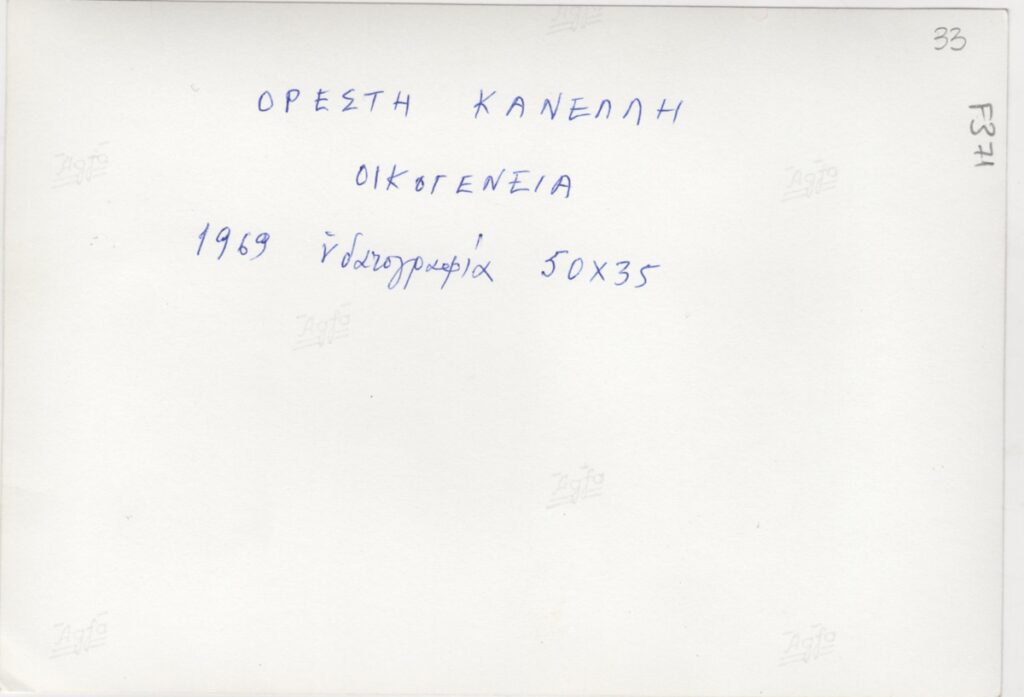 33
F371
ΟΡΕΣΤΗ ΚΑΝΕΛΛΗ
ΟΙΚΟΓΕΝΕΙΑ
1969 ὑδατογραφία 50X35
Agfa
Agfa
Agfa
Agfa
Agfa
Agfa
Agfa